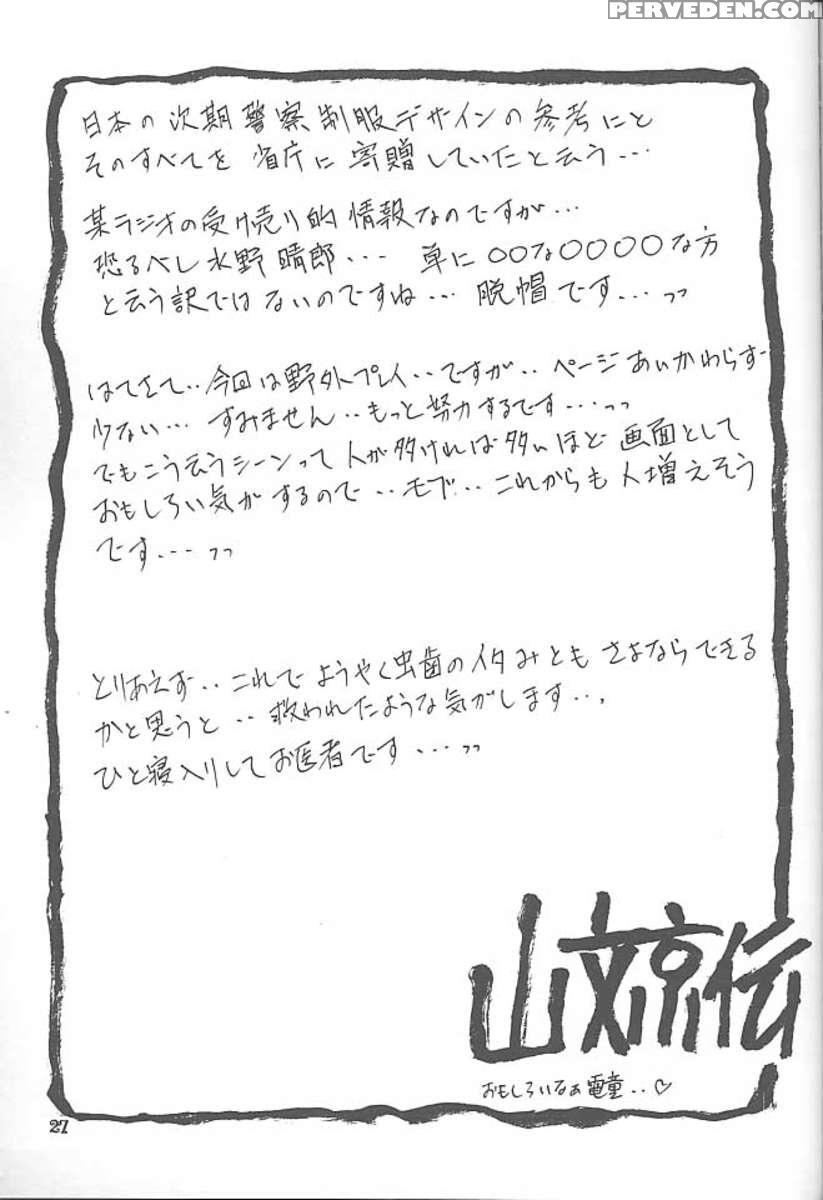 PERVEDEN.COM
日本の次期警察制服デザインの参考にと
そのすべてを省庁に寄贈していたと云う・・・
某ラジオの受け売り的情報なのですが・・・
恐るべし水野晴郎・・・ 単に○○な○○○○な方
と云う訳ではないのですね・・・ 脱帽です・・・ッッ
はてさて・・今回は野外プレイ・・ですが・・ページあいかわらず
少ない・・・ すみません・・もっと努力するです・・・ッッ
でもこう云うシーンって人が多ければ多いほど画面として
おもしろい気がするので・・モブ・・これからも人増えそう
です・・・ッッ
とりあえず・・これでようやく虫歯のイタみともさよならできる
かと思うと・・救われたような気がします・・・
ひと寝入りしてお医者です・・・ッッ
山文京伝
おもしろいなぁ電童・・♡
27